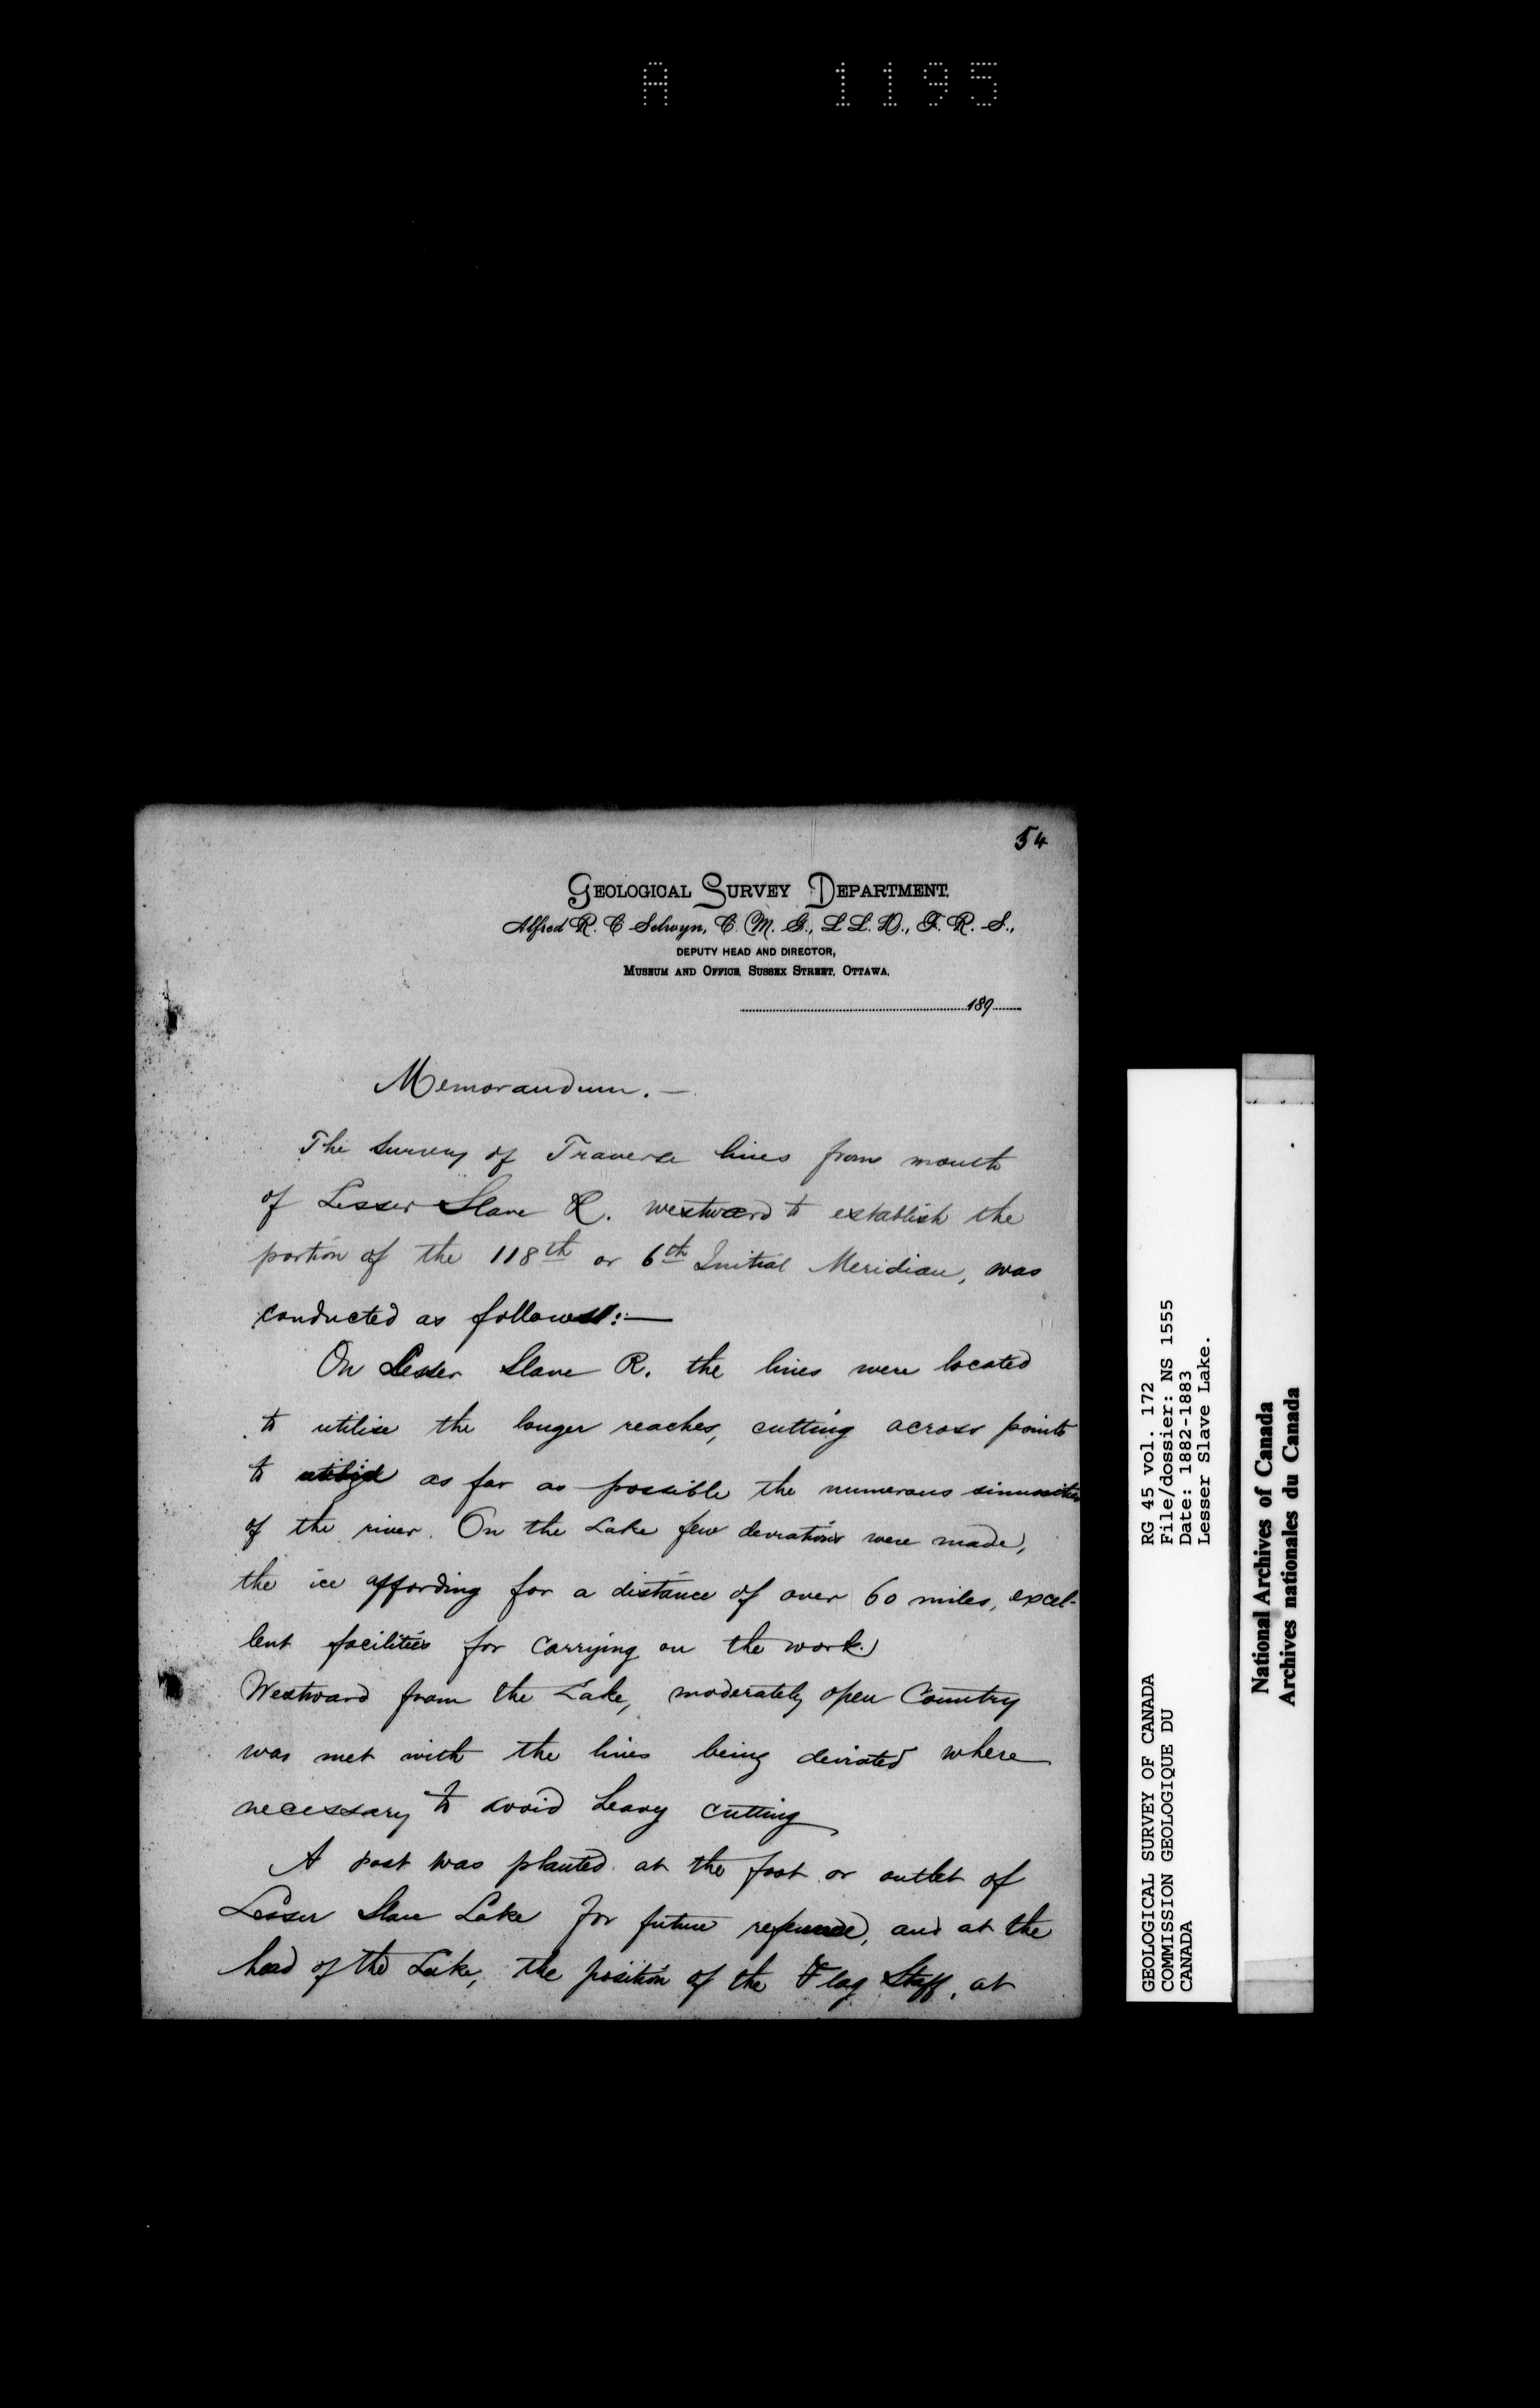 A 1195
54
GEOLOGICAL SURVEY DEPARTMENT.
Alfred R. C Selwyn, C. M. G., L L. D., F. R. S.,
DEPUTY HEAD AND DIRECTOR,
MUSEUM AND OFFICE, SUSSEX STREET, OTTAWA.
189
Memorandum. —
The Survey of Traverse lines from mouth
of Lesser Slave R. westward to establish the
portion of the 118th or 6th Initial Meridian, was
conducted as follows:—
On Lesser Slave R. the lines were located
to utilise the longer reaches, cutting across points
to as far as possible the numerous sinuosities
of the river. On the Lake few deviations were made,
the ice affording for a distance of over 60 miles, excel-
lent facilities for carrying on the work.
Westward from the Lake, moderately open Country
was met with the lines being deviated where
necessary to avoid heavy cutting
A post was planted at the foot or outlet of
Lesser Slave Lake for future reference, and at the
head of the Lake, the position of the Flag Staff, at
GEOLOGICAL SURVEY OF CANADA
COMMISSION GEOLOGIQUE DU
CANADA
RG 45 vol. 172
File/dossier: NS 1555
Date: 1882-1883
Lesser Slave Lake.
National Archives of Canada
Archives nationales du Canada